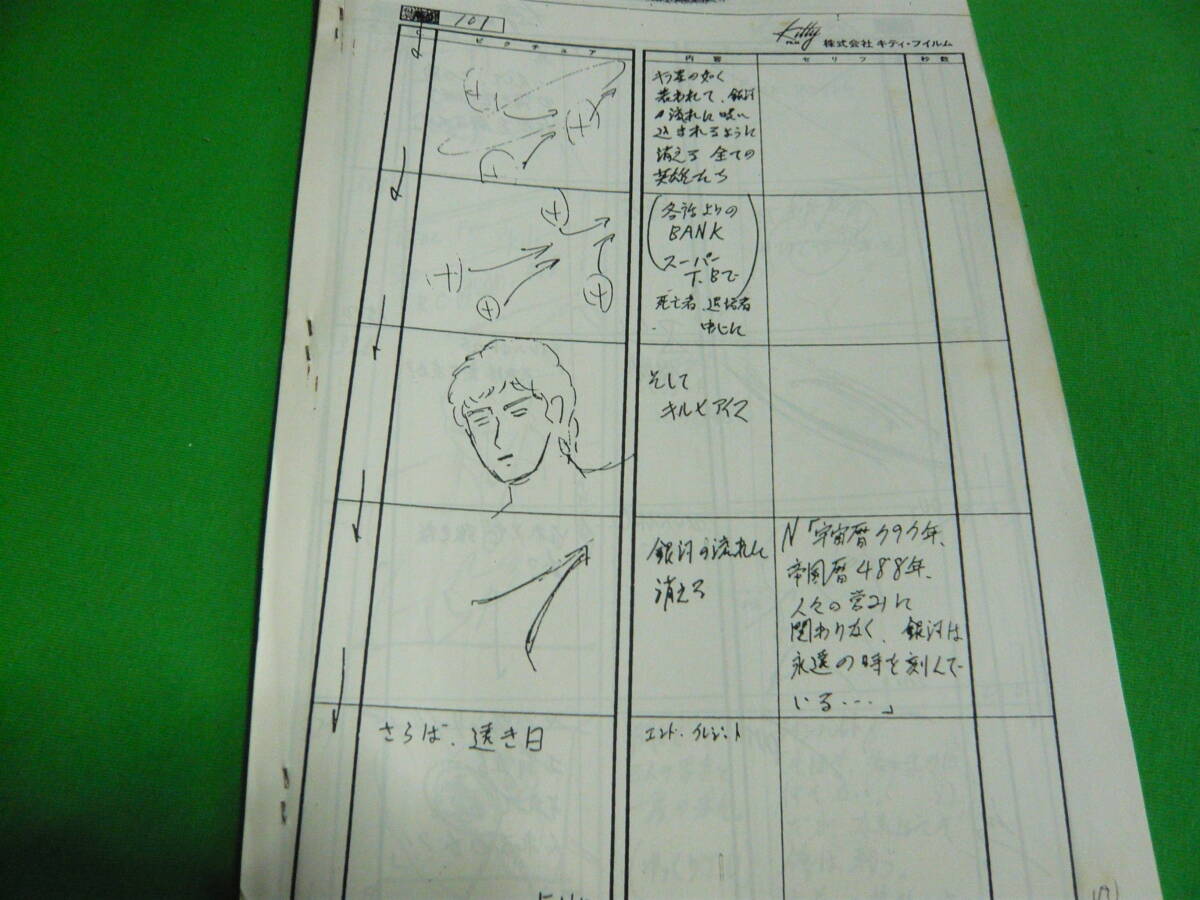 101
Kitty
株式会社 キティ・フイルム
ピクチュア
内容
セリフ
秒数
キラ星の如く
銀河
流れに吸い
込まれるように
消える 全ての
英雄たち
各話よりの
BANK
スーパー
T.Bで
死亡者、退場者
中心に
そして
キルヒアイス
銀河の流れに
消える
N「宇宙暦797年、
帝国暦488年、
人々の営みに
関わりなく、銀河は
永遠の時を刻んで
いる…」
さらば、遠き日
エンド・クレジット